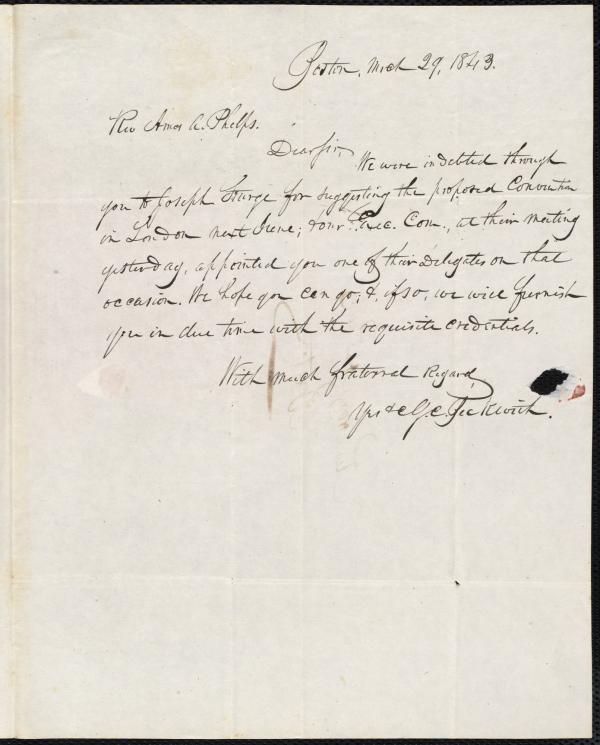 Boston, Mch 29, 1843.
Rev Amos A. Phelps.
Dear Sir,
We were indebted through
you to Joseph Sturge for suggesting the proposed Convention
in London next June; & our Exec. Com., at their meeting
yesterday, appointed you one of their Delegates on that
occasion. We hope you can go; & if so, we will furnish
you in due time with the requisite credentials.
With much fraternal regard,
Yrs &c G. C. Beckwith.